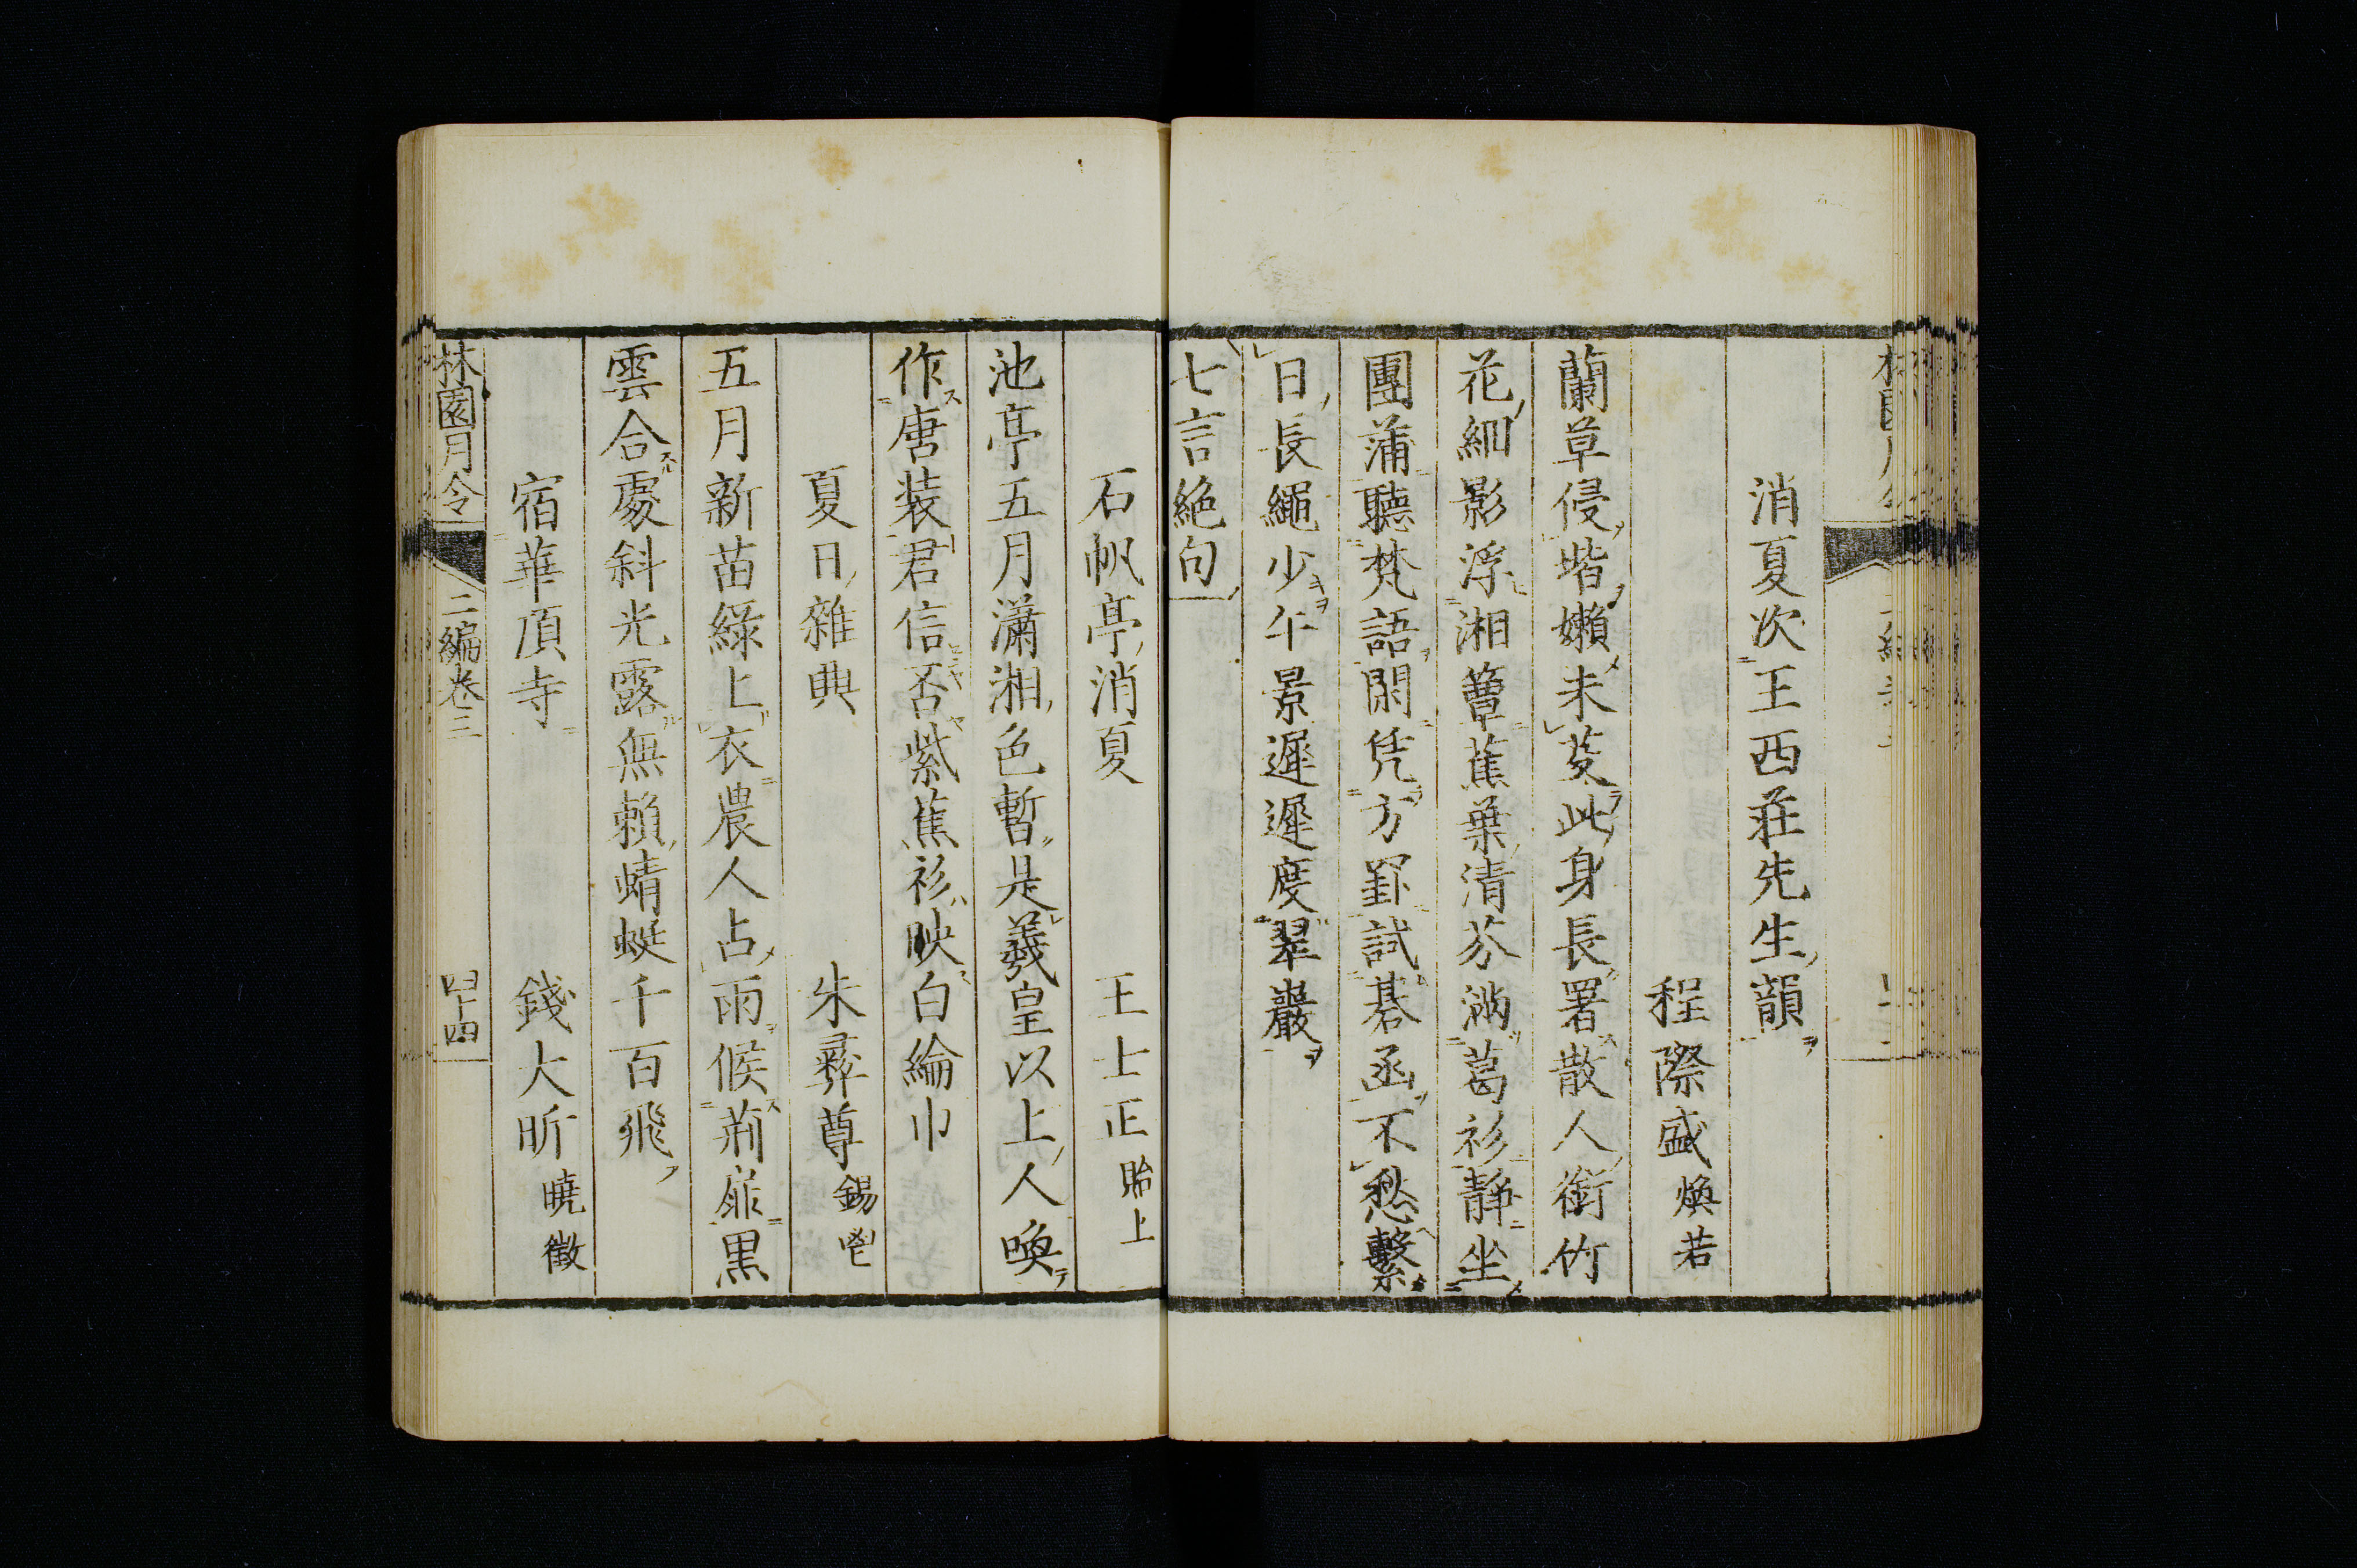 消夏次王西莊先生韻
程際盛 煥若
蘭草侵堦嬾未芟此身長署散人銜竹
花細影浮湘簟蕉葉清芬滿葛衫靜坐
團蒲聽梵語閑凭方罫試碁函不愁繫
日長繩少午景遲遲度翠巖
七言絶句
石帆亭消夏
王士正 貽上
池亭五月瀟湘色暫是羲皇以上人喚
作唐裝君信否紫蕉衫映白綸巾
夏日雜興
朱彝尊 錫鬯
五月新苗綠上衣農人占雨候荊扉黒
雲合處斜光露無賴蜻蜓千百飛
宿華頂寺
錢大昕 曉徵
林園月令 二編卷三 四十四